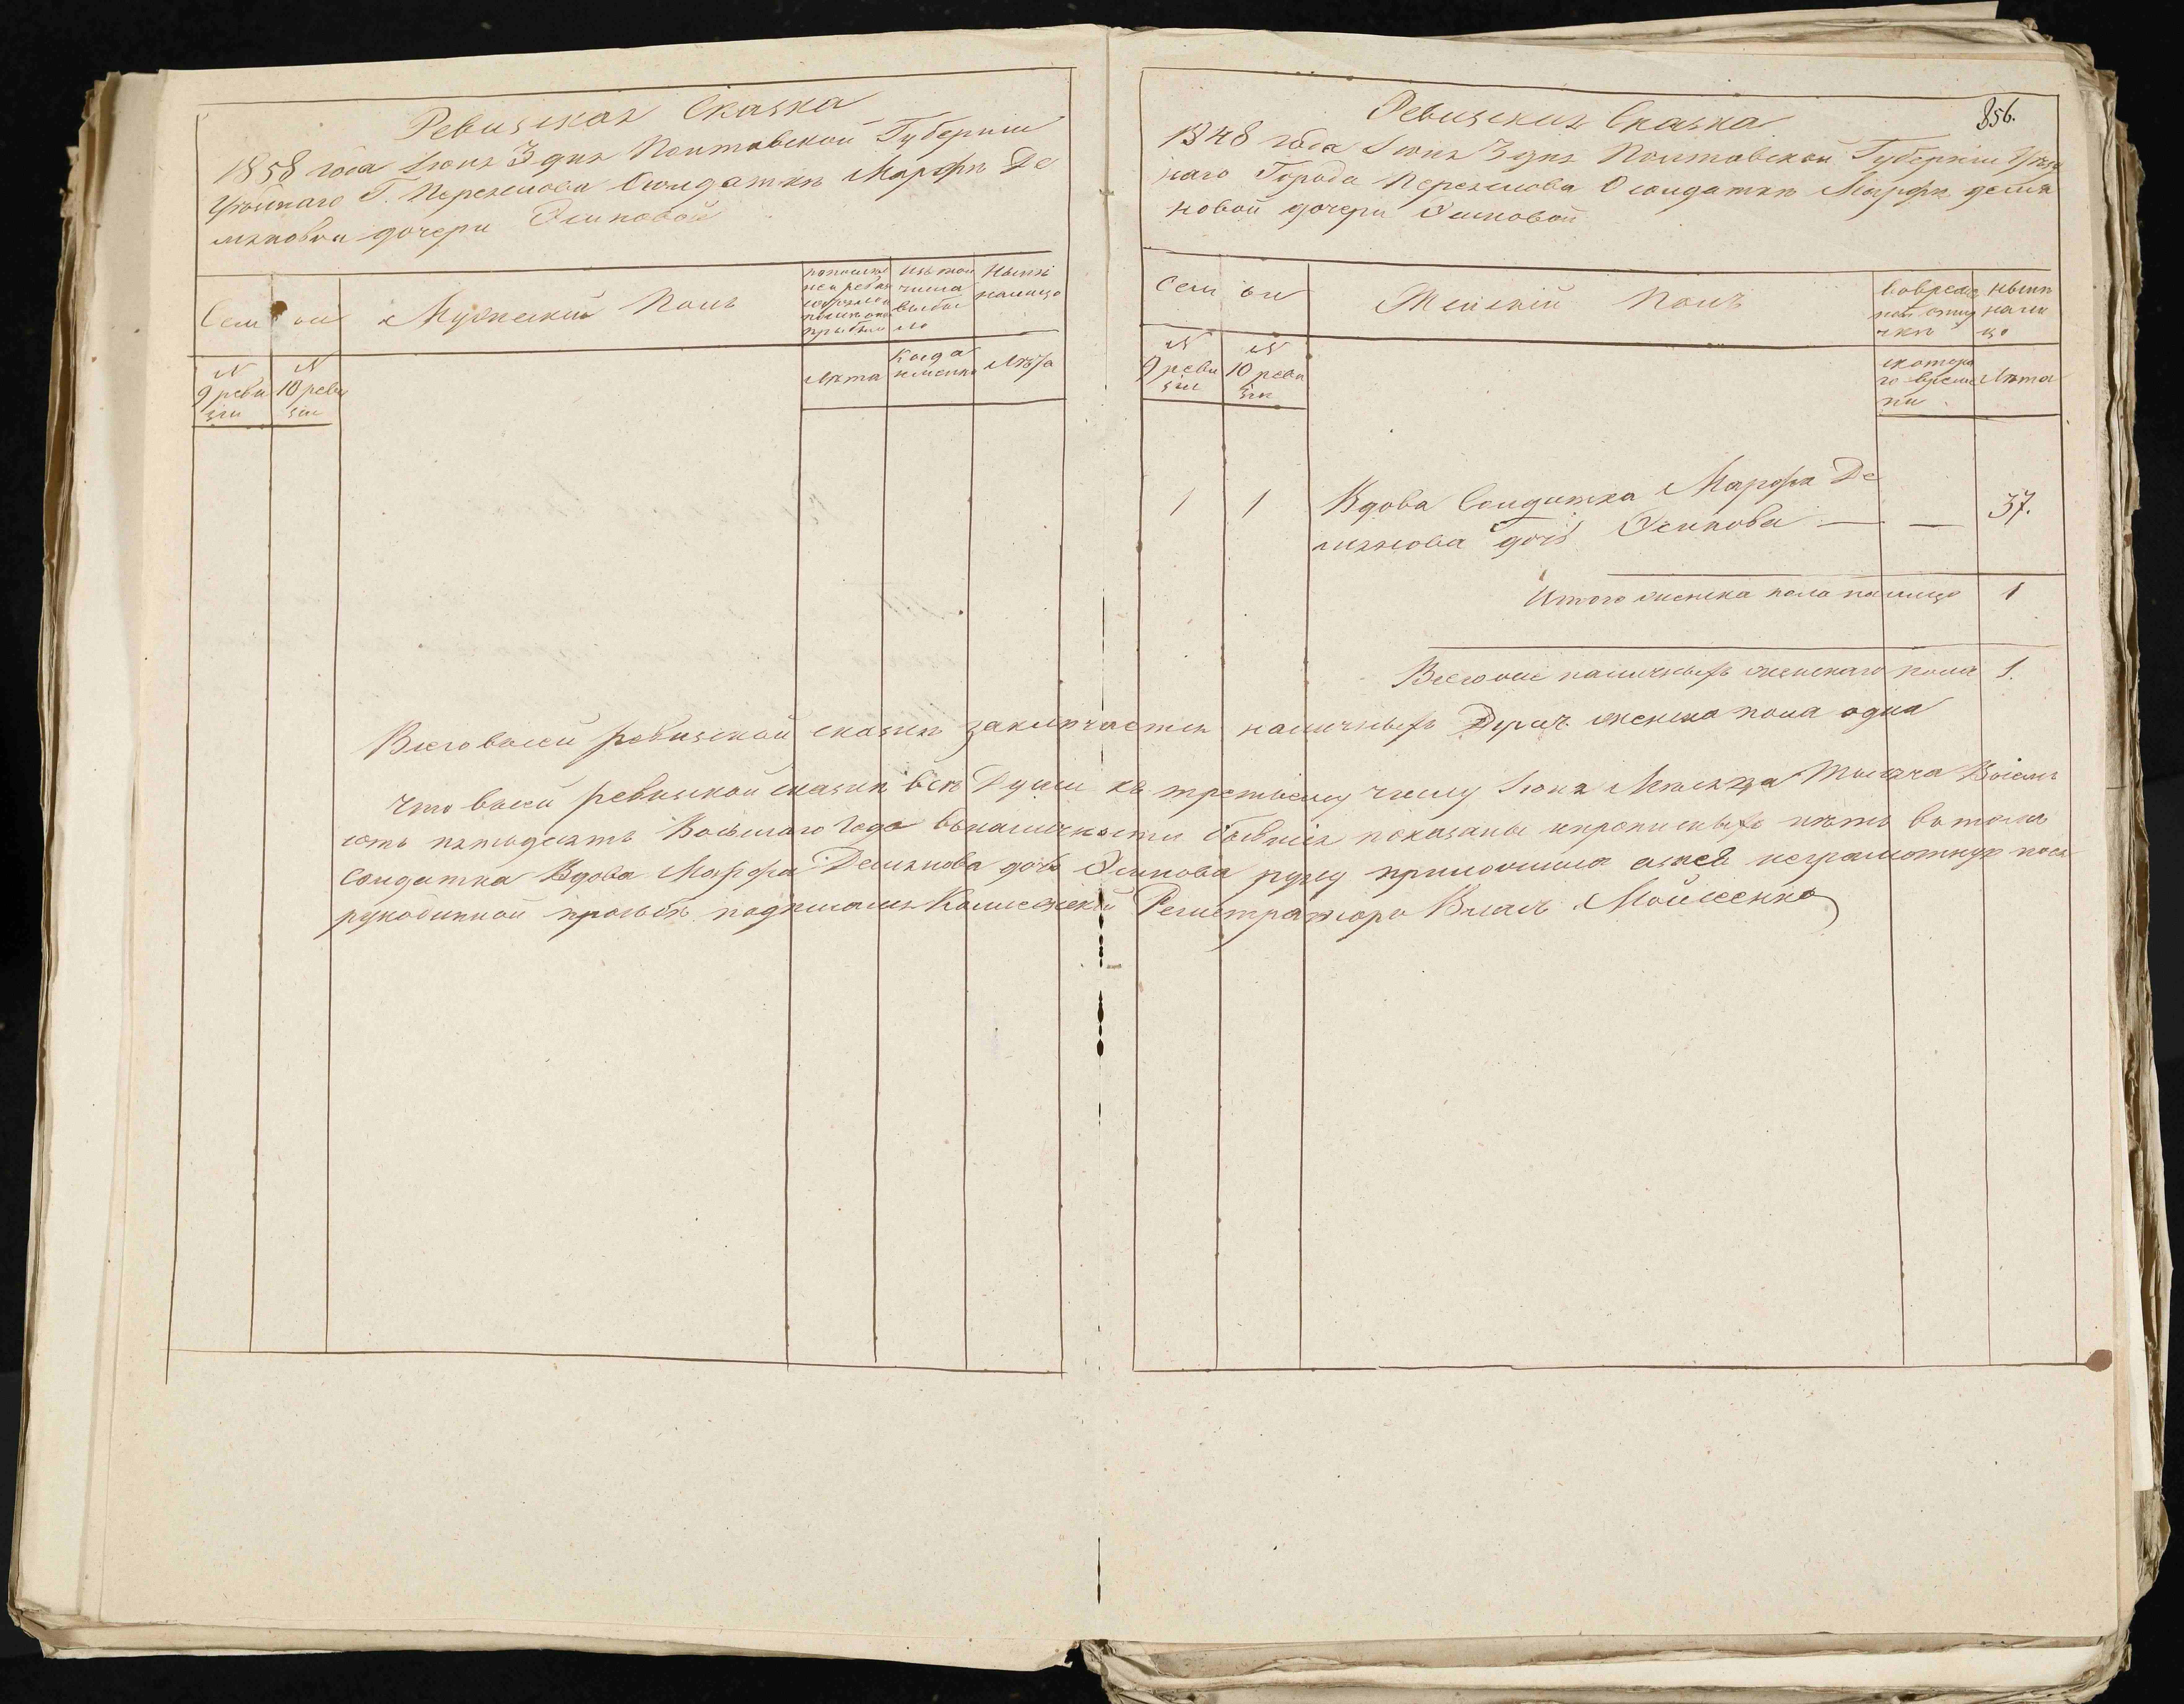 Ревизская Сказка
1858 года Июня 3 дня Полтавской Губернии
Уезднаго Г. Переяслова О солдатке Марфе Де
мяновой дочери Осиповой
Семьи
Мужеский Полъ
изъ того числа выбыло
Ныне налицо
Лета
Когда именно
Лета
№ 9 ревизии
№ 10 ревизии
856.
Ревизская Сказка
1848 года Июня 3 дня Полтавской Губернии Уезд
наго Города Переяслова О солдатке Марфе демя
новой дочери Осиповой
Семьи
Женский Полъ
Во временной отлучке
Ныне налицо
№ 9 ревизии
№ 10 ревизии
с котораго времени
Лета
1 1 Вдова Солдатка Марфа Де
мянова дочь Осипова — — 37.
Итого женска пола налицо 1
Всего наличныхъ женскаго пола 1.
Всего в сей ревизской сказке заключается наличныхъ Душъ женска пола одна
Что в сей ревизской сказке все Души къ третьему числу Июня Месяца Тысяча Восемь
сотъ пятьдесятъ Восьмаго Года въ наличности бывшия показаны и прописныхъ нетъ въ томъ
солдатка Вдова Марфа Демянова дочь Осипова руку приложила а за нее неграмотную по ея
рукоданной прозьбе подписался Колежский Регистраторъ Моисеенко